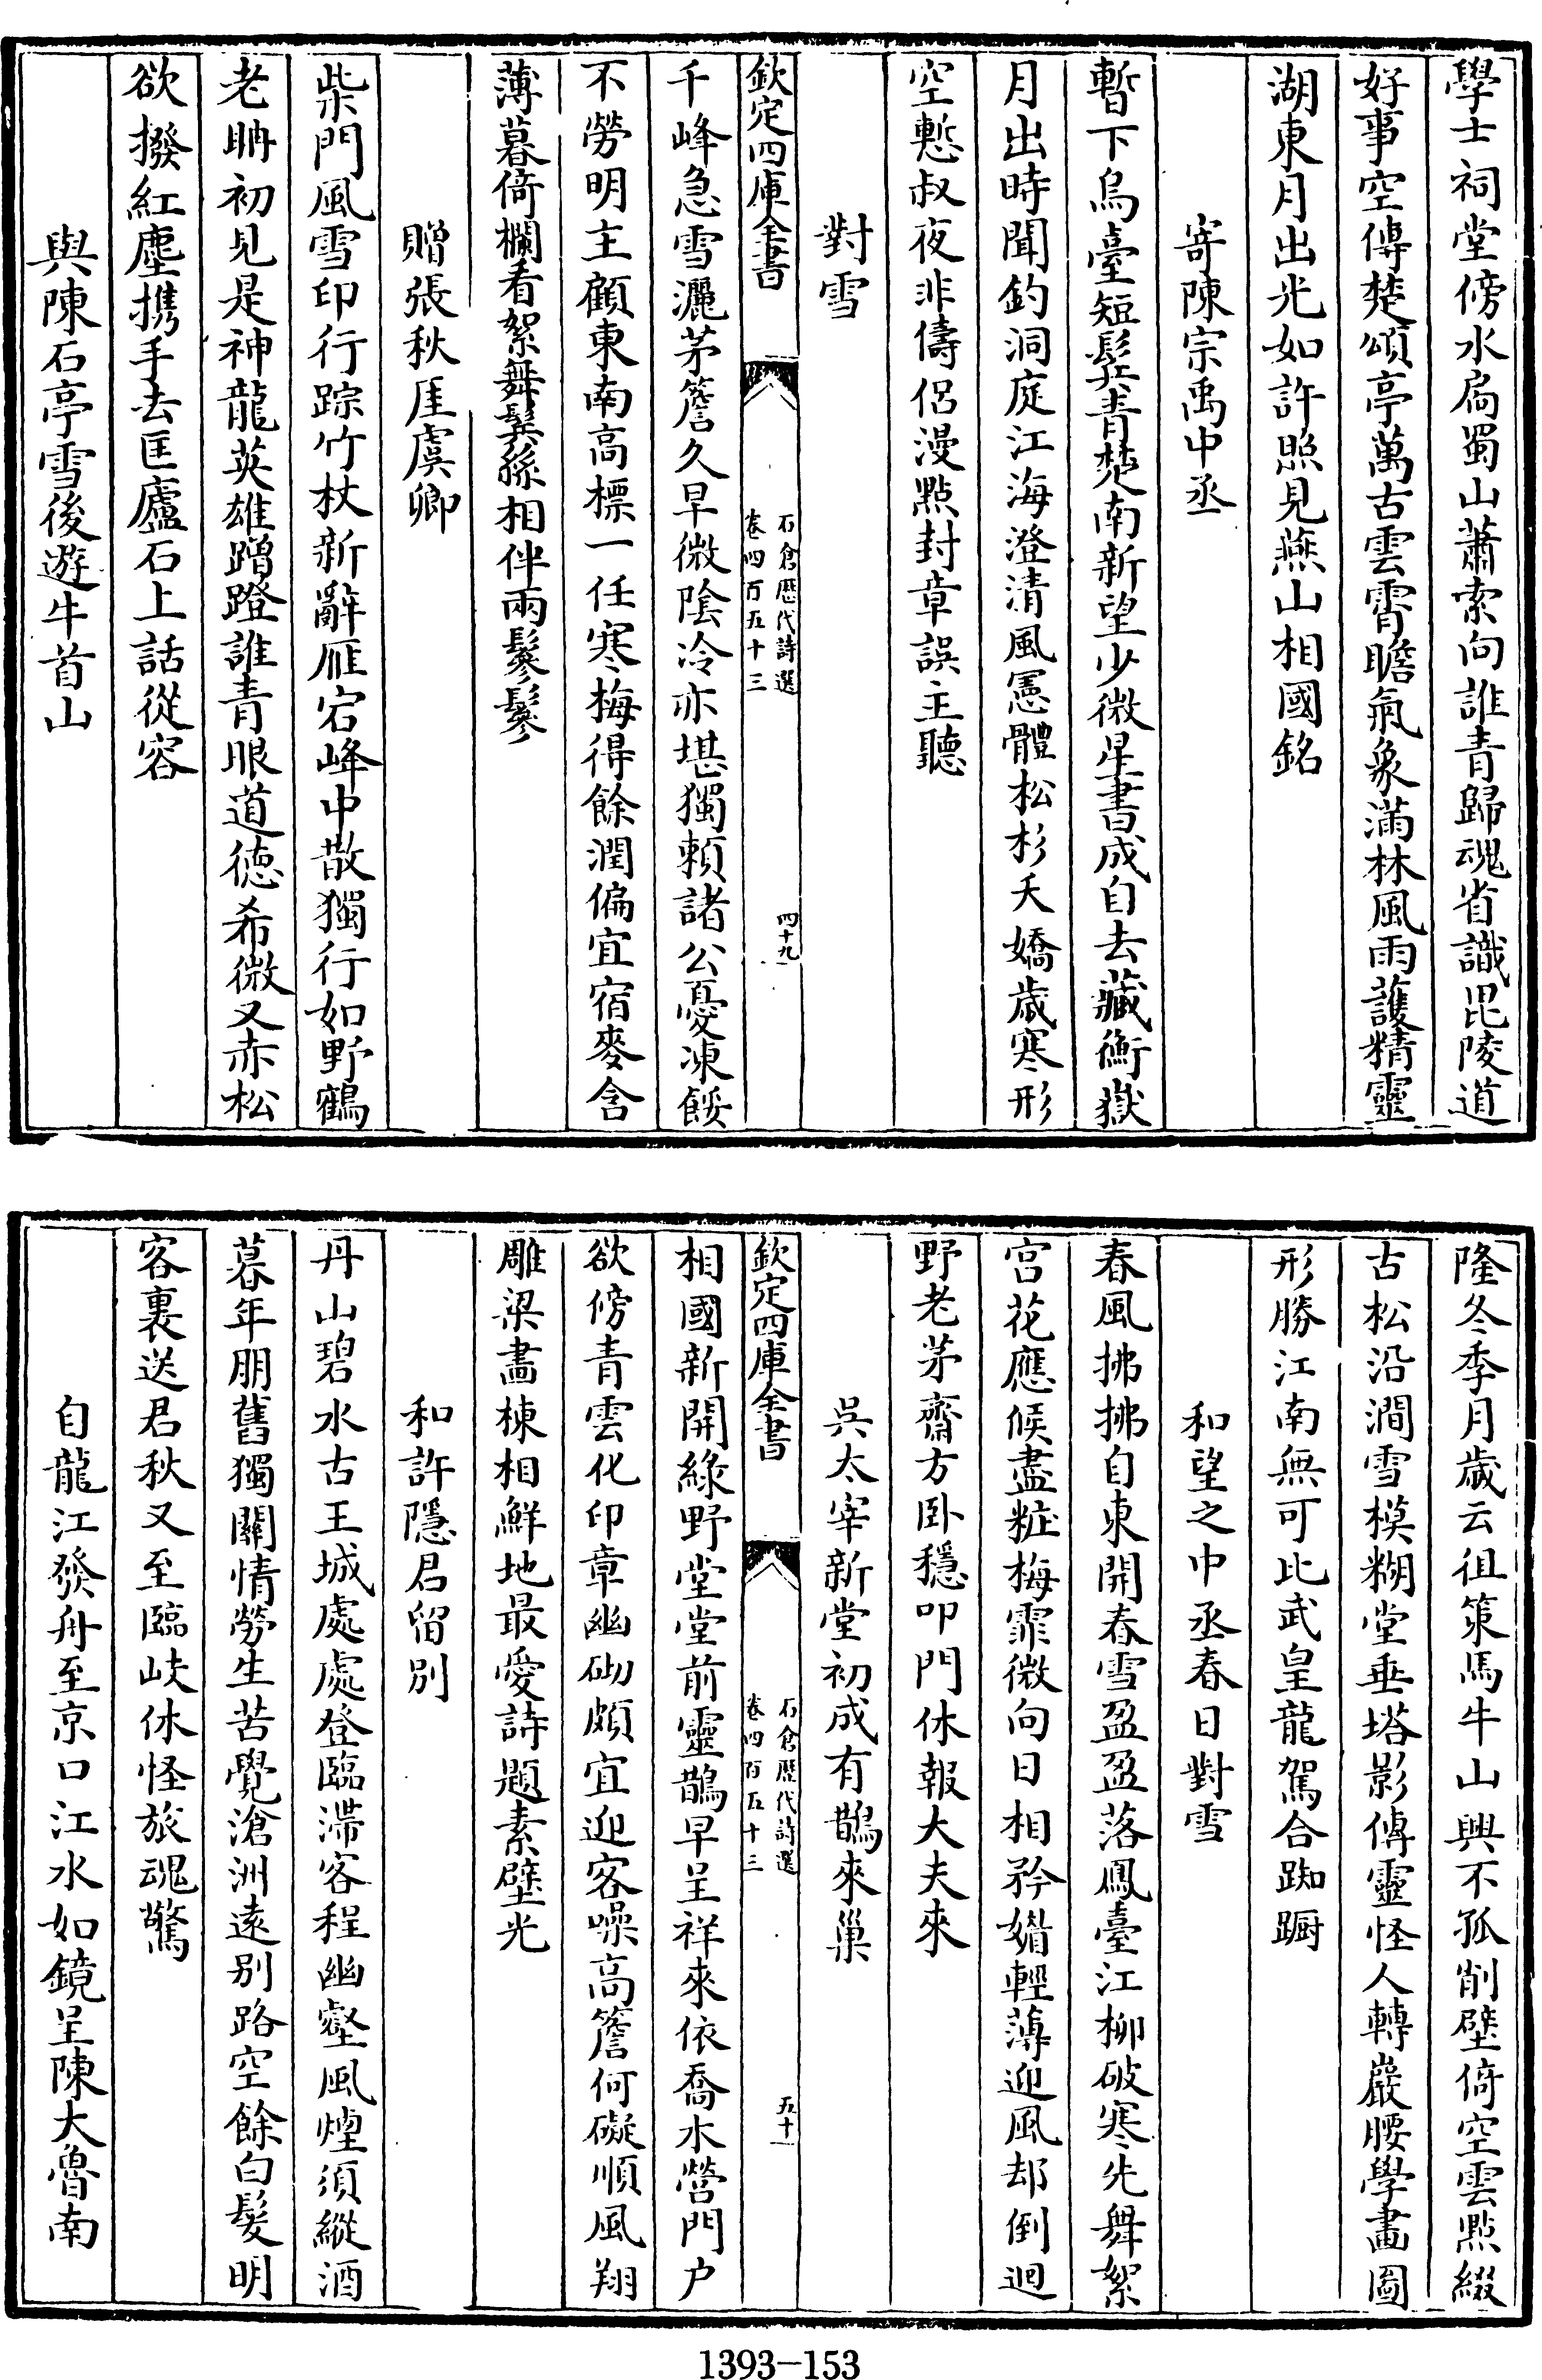 學士祠堂傍水扃蜀山蕭索向誰青歸魂省識毘陵道
好事空傳楚頌亭萬古雲霄瞻氣象滿林風雨護精靈
湖東月出光如許照見燕山相國銘
寄陳宗禹中丞
暫下烏臺短髮青楚南新望少微星書成自去藏衡嶽
月出時聞釣洞庭江海澄清風憲體松杉夭矯歲寒形
空慙叔夜非儔侣漫點封章誤主聽
對雪
欽定四庫全書
石倉歷代詩選
卷四百五十三
四十九
千峰急雪灑茅簷久旱微陰冷亦堪獨頼諸公憂凍餒
不勞明主顧東南高標一任寒梅得餘潤偏宜宿麥含
薄暮倚欄看絮舞鬓絲相伴兩鬖鬖
贈張秋厓虞卿
柴門風雪印行踪竹杖新辭雁宕峰中散獨行如野鶴
老聃初見是神龍英雄蹭蹬誰青眼道德希微又赤松
欲撥紅塵携手去匡廬石上話從容
與陳石亭雪後遊牛首山
隆冬季月歲云徂策馬牛山興不孤削壁倚空雲㸃綴
古松沿澗雪模糊堂垂塔影傳靈怪人轉巖腰學畫圖
形勝江南無可比武皇龍駕合踟蹰
和望之中丞春日對雪
春風拂拂自東開春雪盈盈落鳳臺江柳破寒先舞絮
宫花應候盡粧梅霏微向日相矜媚輕薄迎風却倒迴
野老茅齋方卧穩叩門休報大夫來
吳太宰新堂初成有鵲來巢
欽定四庫全書
石倉歷代詩選
卷四百五十三
五十
相國新開綠野堂堂前靈鵲早呈祥來依喬木營門户
欲傍青雲化印章幽砌頗宜迎客噪高簷何礙順風翔
雕梁畵棟相鮮地最愛詩題素壁光
和許隱君留别
丹山碧水古王城處處登臨滯客程幽壑風煙須縱酒
暮年朋舊獨關情勞生苦覺滄洲遠别路空餘白髮明
客裏送君秋又至臨岐休怪旅魂驚
自龍江發舟至京口江水如鏡呈陳大魯南
1393-153